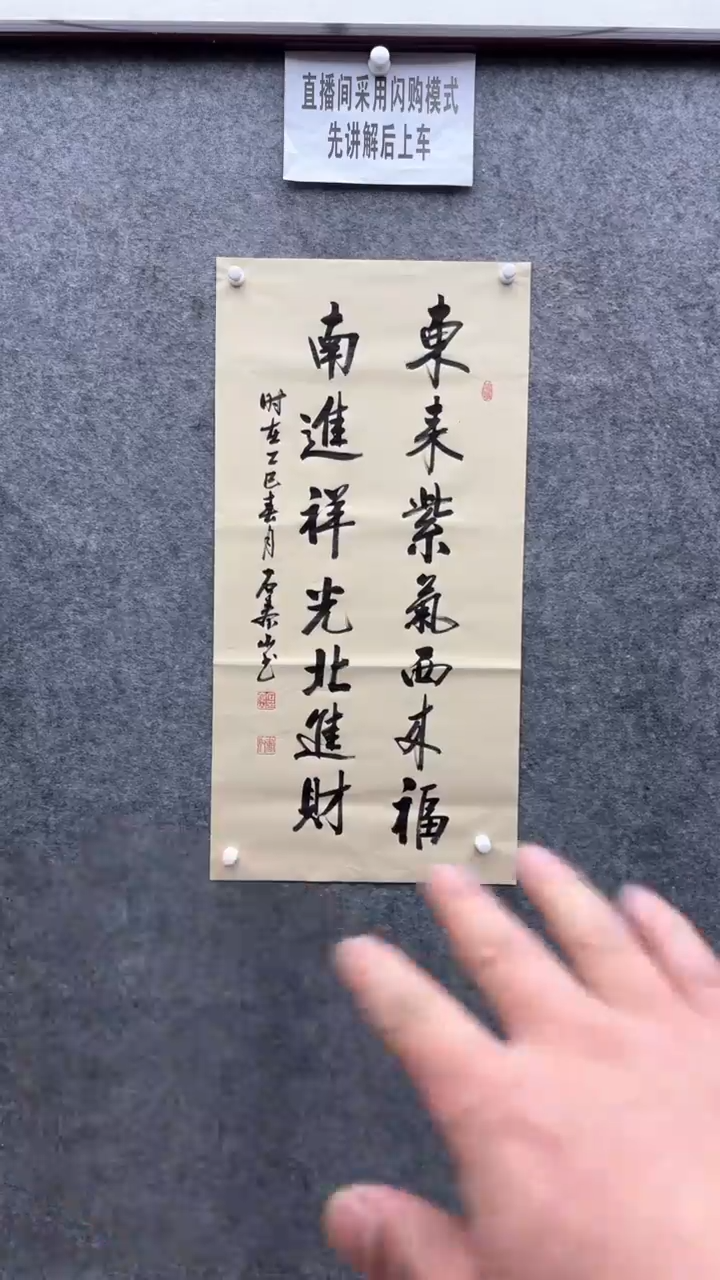 直播间采用闪购模式
先讲解后上车
東来紫氣西来福
南進祥光北進財
时在乙巳春月石泰山书